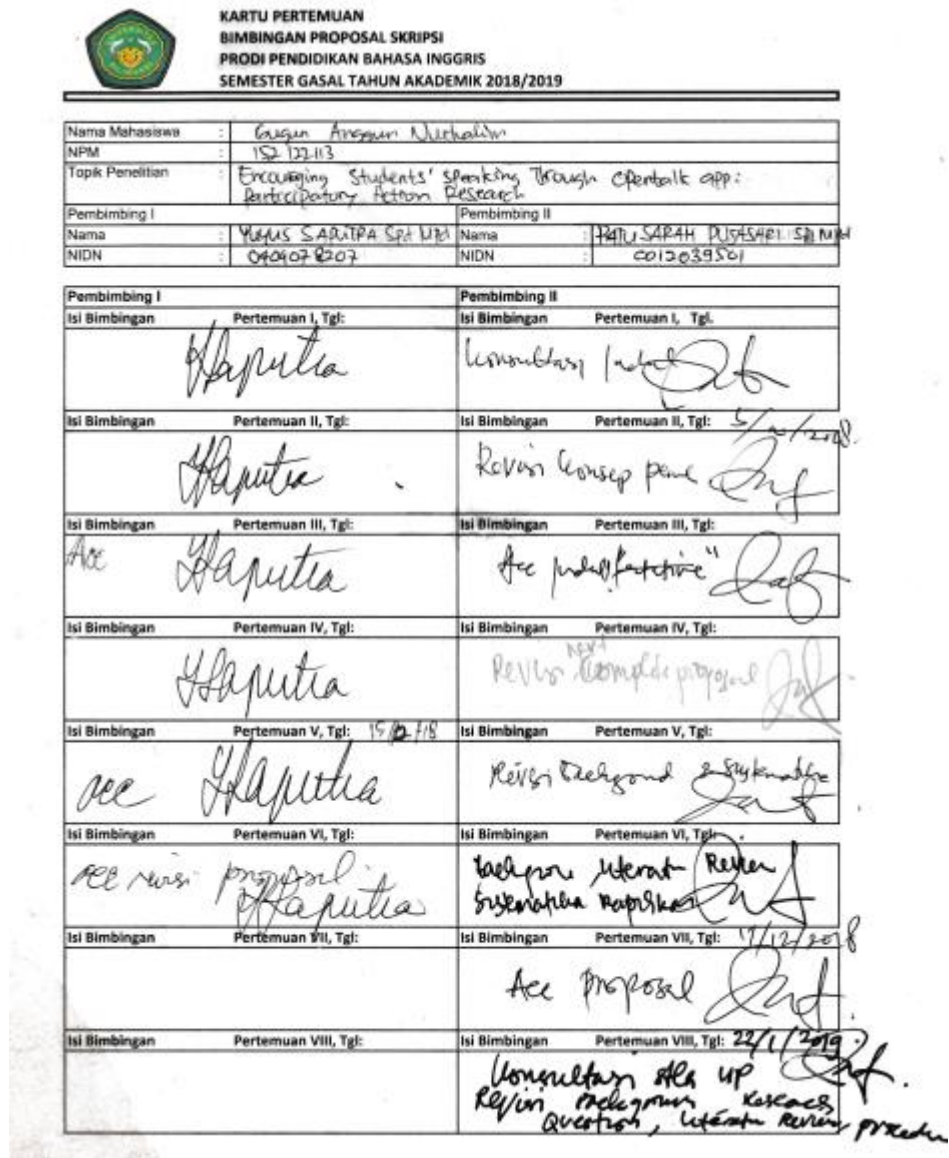 KARTU PERTEMUAN
BIMBINGAN PROPOSAL SKRIPSI
PRODI PENDIDIKAN BAHASA INGGRIS
SEMESTER GASAL TAHUN AKADEMIK 2018/2019
Nama Mahasiswa : Gugun Anggun Nurhalim
NPM : 152122113
Topik Penelitian : Encouraging Students' speaking Through Opentalk app:
Participatory Action Research
Pembimbing I Pembimbing II
Nama : YUYUS SAPUTRA S.Pd M.Pd Nama : RATU SARAH PUSPASARI S.Pd M.Pd
NIDN : 0404078207 NIDN : 0012039501
Pembimbing I Pembimbing II
Isi Bimbingan Pertemuan I, Tgl: Isi Bimbingan Pertemuan I, Tgl.
YSaputra Konsultasi judul
Isi Bimbingan Pertemuan II, Tgl: Isi Bimbingan Pertemuan II, Tgl:
YSaputra Revisi konsep
Isi Bimbingan Pertemuan III, Tgl: Isi Bimbingan Pertemuan III, Tgl:
Acc YSaputra Acc judul
Isi Bimbingan Pertemuan IV, Tgl: Isi Bimbingan Pertemuan IV, Tgl:
YSaputra Revisi proposal
Isi Bimbingan Pertemuan V, Tgl: Isi Bimbingan Pertemuan V, Tgl:
acc YSaputra Revisi
Isi Bimbingan Pertemuan VI, Tgl: Isi Bimbingan Pertemuan VI, Tgl:
acc revisi proposal Literatur Review
YSaputra Sistematika
Isi Bimbingan Pertemuan VII, Tgl: Isi Bimbingan Pertemuan VII, Tgl: 17/12/2018
Acc proposal
Isi Bimbingan Pertemuan VIII, Tgl: Isi Bimbingan Pertemuan VIII, Tgl: 22/1/2019
Konsultasi UP
Revisi Research
Question, Review